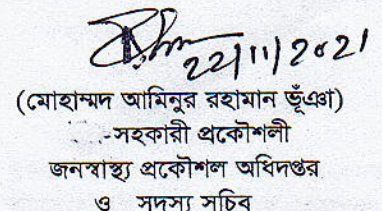 22/11/2021
(মোহাম্মদ আমিনুর রহমান ভূঁঞা)
সহকারী প্রকৌশলী
জনস্বাস্থ্য প্রকৌশল অধিদপ্তর
ও সদস্য সচিব